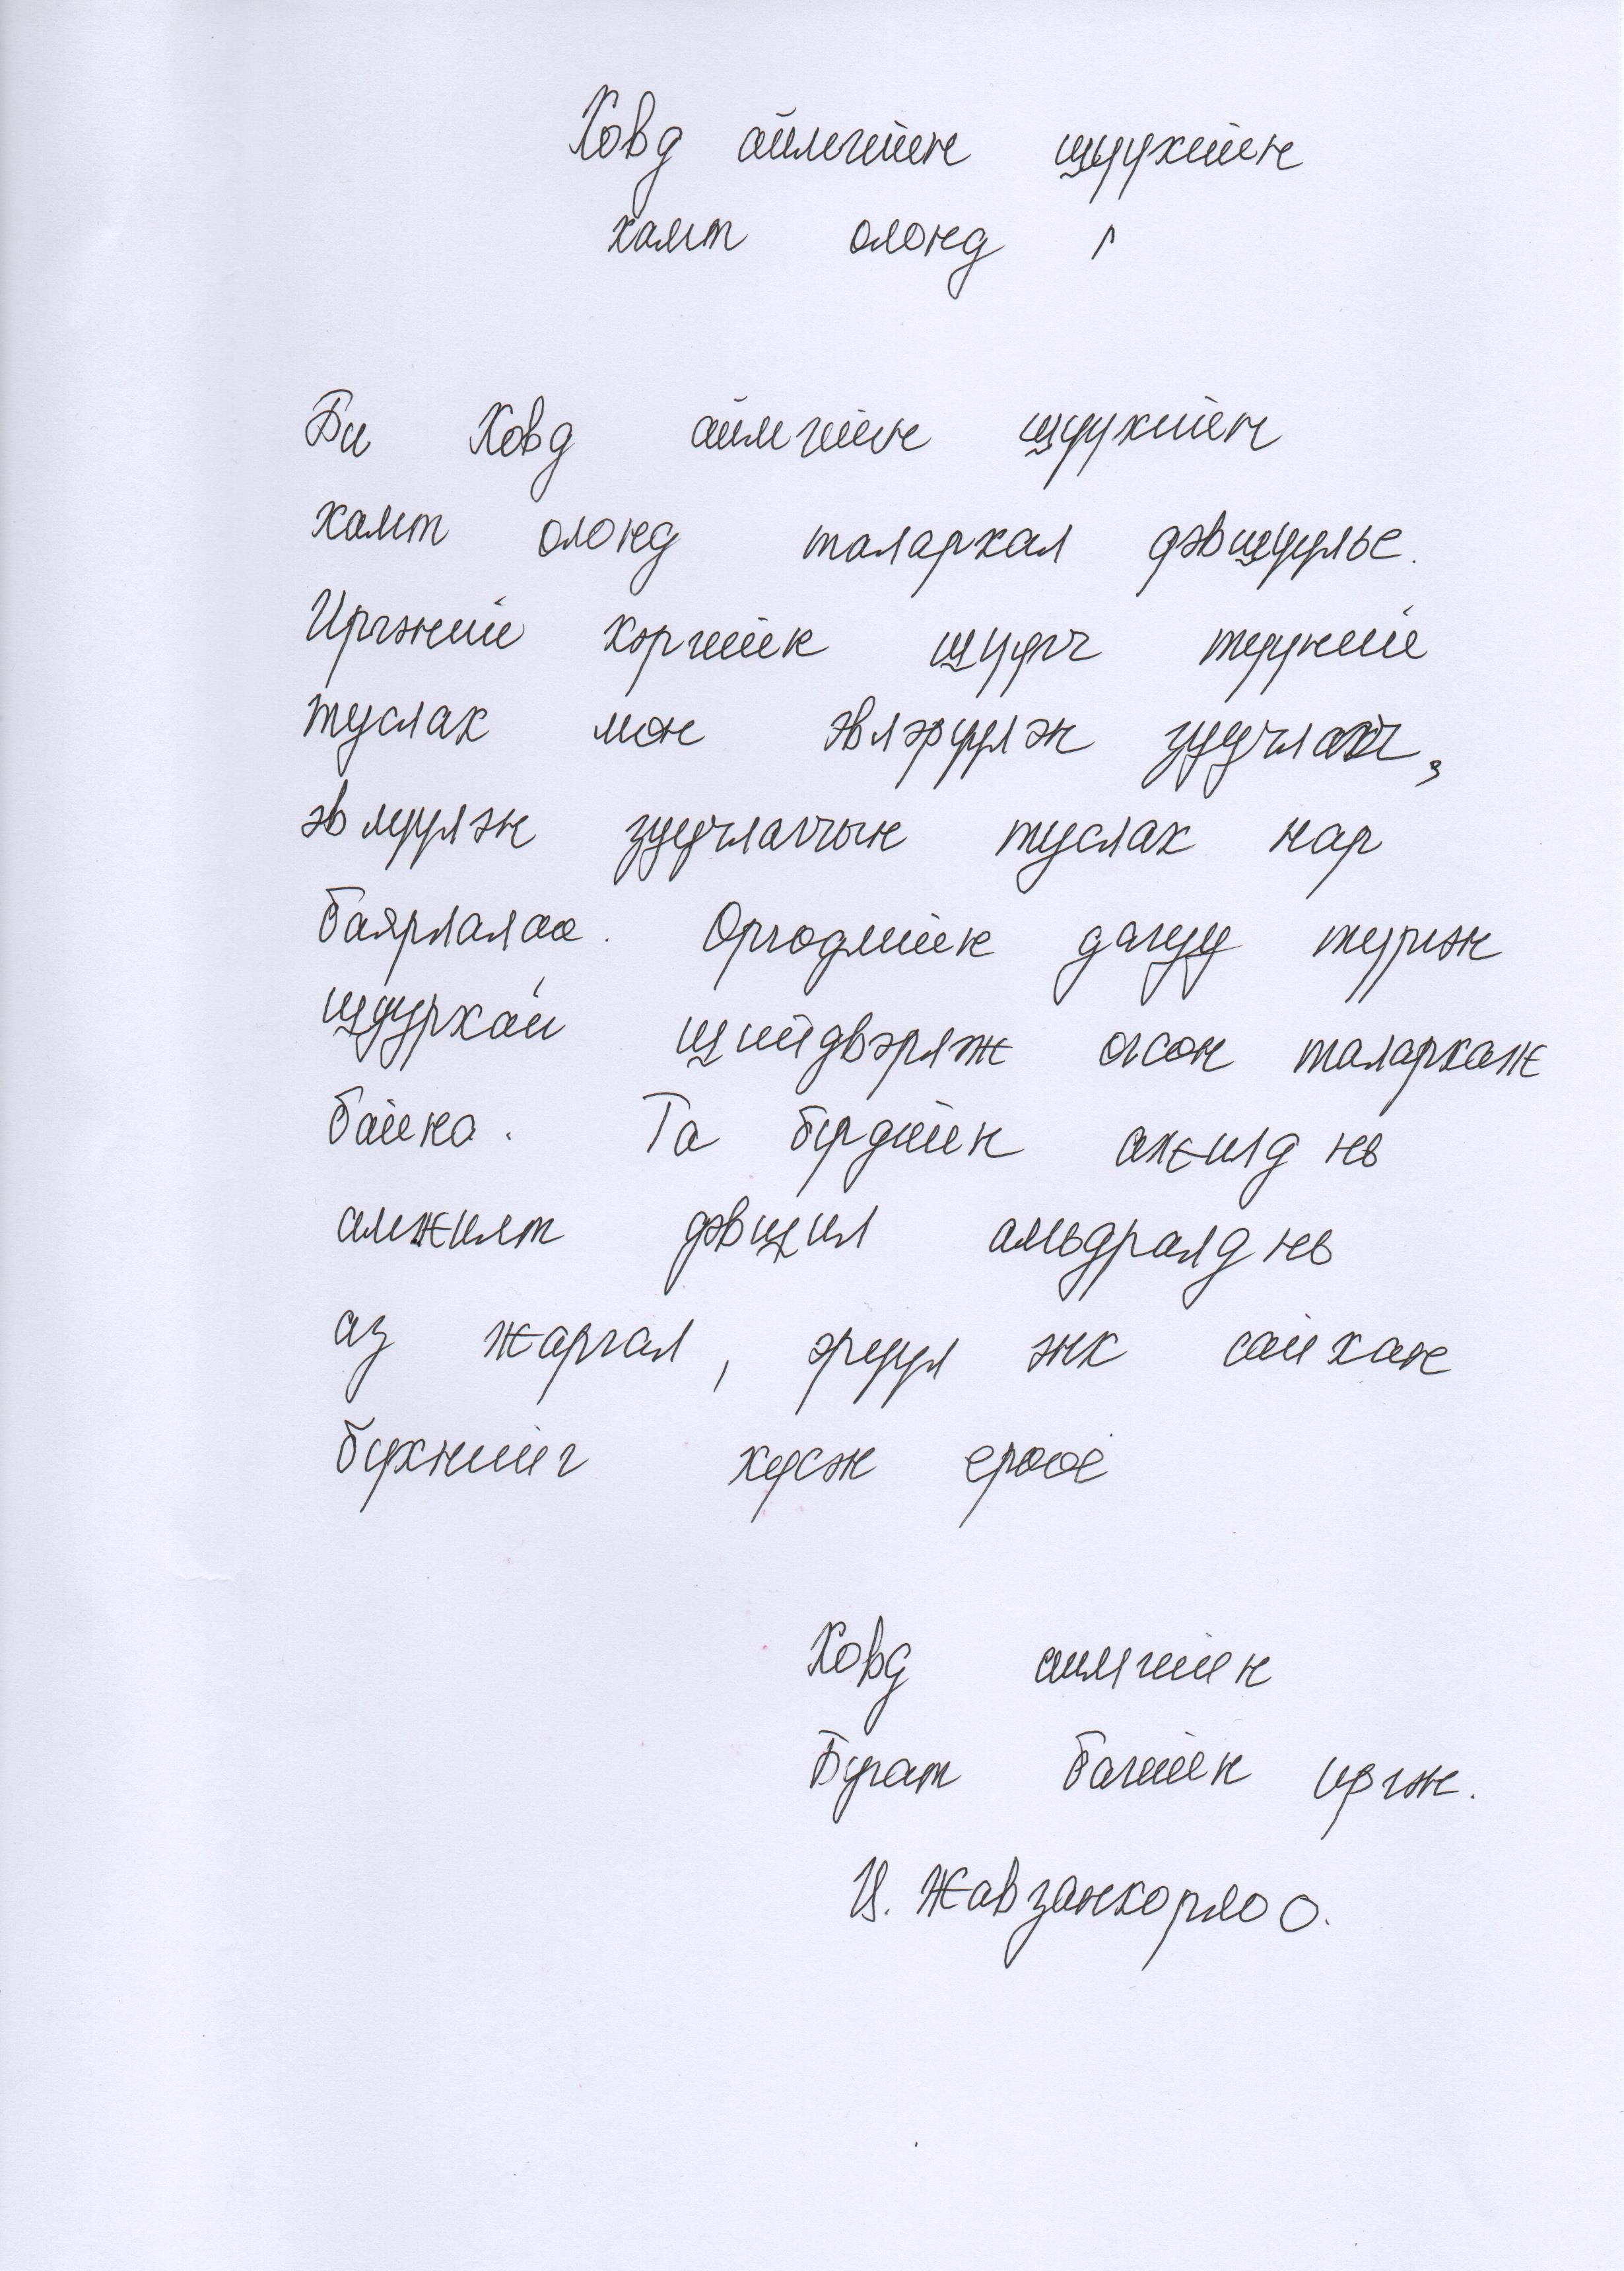 Ховд аймгийн шүүхийн
хамт олонд
Би Ховд аймгийн шүүхийн
хамт олонд талархал дэвшүүлье.
Иргэний хэргийн шүүгч түүний
туслах мөн эвлэрүүлэн зуучлагч,
эвлүүлэн зуучлагчын туслах нар
баярлалаа. Өргөдлийн дагуу түргэн
шуурхай шийдвэрлэж өгсөн талархаж
байна. Та бүгдийн ажилд нь
амжилт дэвшил амьдралд нь
аз жаргал, эрүүл энх сайхан
бүхнийг хүсэн ерөөе
Ховд аймгийн
Бугат багийн иргэн.
Ц. Жавзанхорлоо.